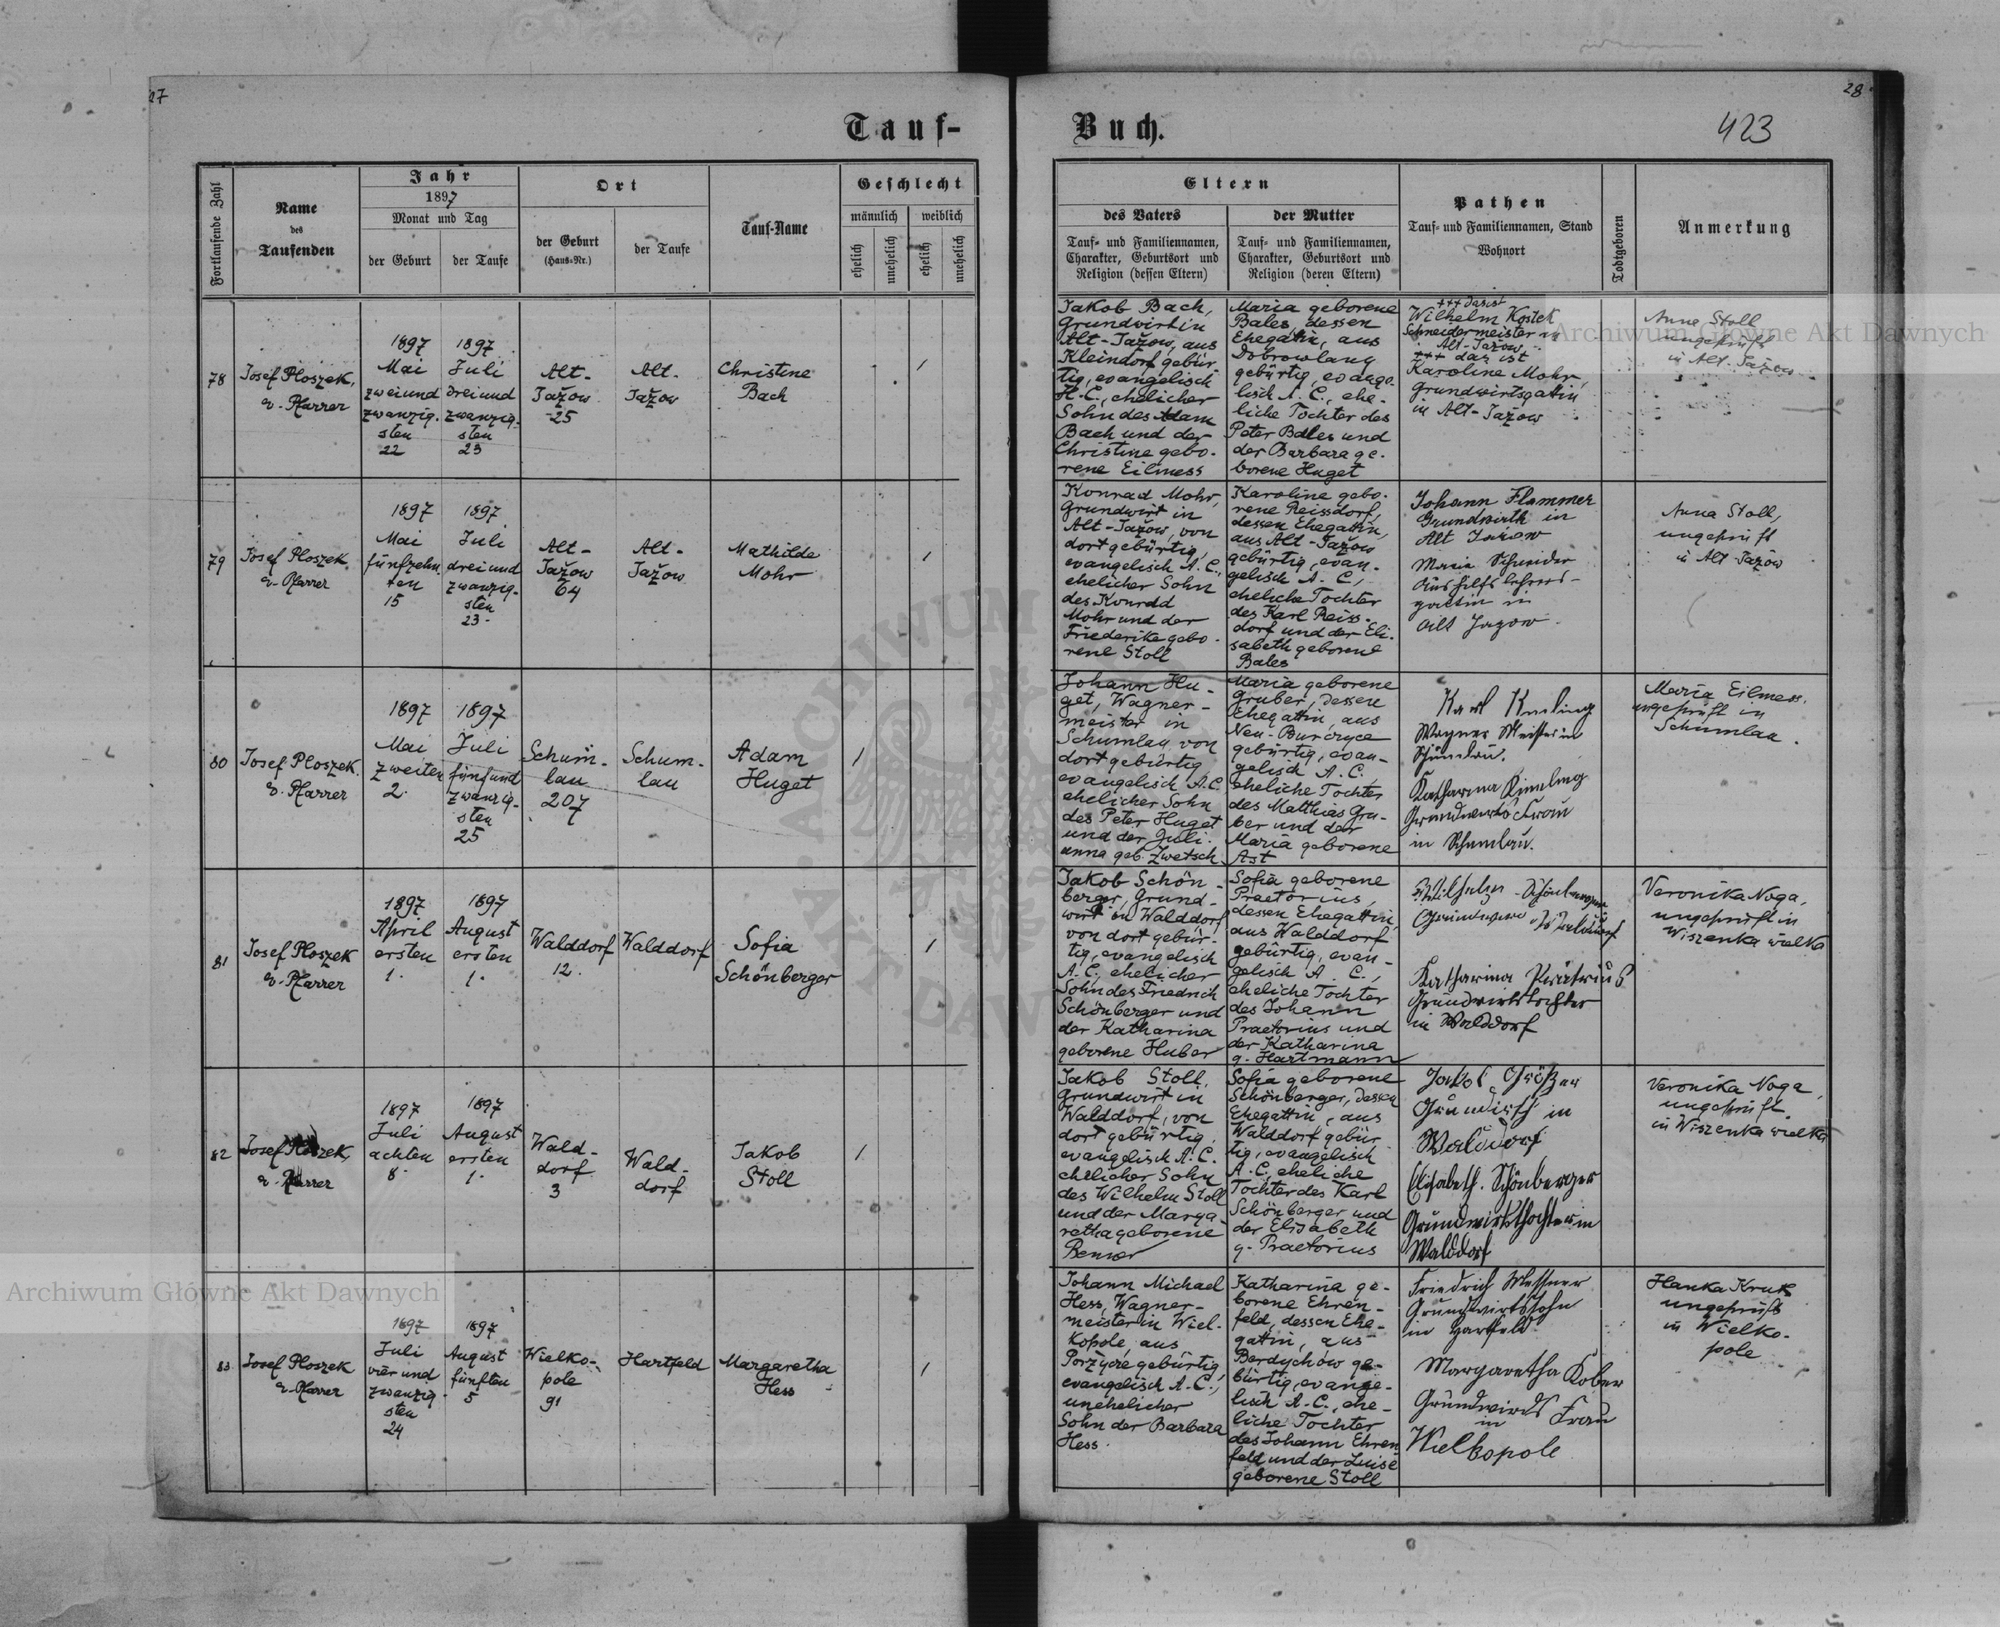 27
28
Tauf-
Buch.
423
Fortlaufende Zahl
Name
des
Taufenden
Jahr
1897
Monat und Tag
der Geburt
der Taufe
Ort
der Geburt
(Haus-Nr.)
der Taufe
Tauf-Name
Geschlecht
männlich
weiblich
ehelich
unehelich
ehelich
unehelich
Eltern
des Vaters
Tauf- und Familiennamen,
Charakter, Geburtsort und
Religion (dessen Eltern)
der Mutter
Tauf- und Familiennamen,
Charakter, Geburtsort und
Religion (deren Eltern)
Pathen
Tauf- und Familiennamen, Stand
Wohnort
Todtgeboren
Anmerkung
78
Josef Ploszek,
ev. Pfarrer
1897
Mai
zweiund
zwanzig-
sten
22
1897
Juli
dreiund
zwanzig-
sten
23
Alt-
Jažow
25
Alt-
Jažow
Christine
Bach
/
Jakob Bach,
Grundwirt in
Alt-Jažow, aus
Kleindorf gebür-
tig, evangelisch
H.C., ehelicher
Sohn des Adam
Bach und der
Christine gebo-
rene Eilmess
Maria geborene
Bales, dessen
Ehegattin, aus
Dobrowlany
gebürtig, evange-
lisch A.C., ehe-
liche Tochter des
Peter Bales und
der Barbara ge-
borene Huget
+++ das ist
Wilhelm Kostek
Schneidermeister in
Alt-Jažow
+++ das ist
Karoline Mohr,
Grundwirtsgattin
in Alt-Jažow
Anna Stoll
ungeprüft
in Alt-Jažow
79
Josef Ploszek
ev. Pfarrer
1897
Mai
fünfzehn-
ten
15
1897
Juli
dreiund
zwanzig-
sten
23
Alt-
Jažow
64
Alt-
Jažow
Mathilde
Mohr
/
Konrad Mohr,
Grundwirt in
Alt-Jažow, von
dort gebürtig,
evangelisch A.C.
ehelicher Sohn
des Konrad
Mohr und der
Friederike gebo-
rene Stoll
Karoline gebo-
rene Reissdorf,
dessen Ehegattin,
aus Alt-Jažow
gebürtig, evan-
gelisch A.C.,
eheliche Tochter
des Karl Reiss-
dorf und der Eli-
sabeth geborene
Bales
Johann Flammer
Grundwirth in
Alt Jazow
Maria Schneider
Aushilfslehrers-
gattin in
Alt Jazow
Anna Stoll,
ungeprüft
in Alt-Jažow
80
Josef Ploszek
ev. Pfarrer
1897
Mai
zweiten
2.
1897
Juli
fünfund
zwanzig-
sten
25
Schum-
lau
207
Schum-
lau
Adam
Huget
/
Johann Hu-
get, Wagner-
meister in
Schumlau von
dort gebürtig
evangelisch A.C.
ehelicher Sohn
des Peter Huget
und der Juli-
anna geb. Zwetsch
Maria geborene
Gruber, dessen
Ehegattin, aus
Neu-Burczyce
gebürtig, evan-
gelisch A.C.,
eheliche Tochter
des Matthias Gru-
ber und der
Maria geborene
Ast
Karl
Wagner Meister in
Schumlau.
Katharina
Grundwirts Frau
in Schumlau.
Maria Eilmess,
ungeprüft in
Schumlau.
81
Josef Ploszek
ev. Pfarrer
1897
April
ersten
1.
1897
August
ersten
1.
Walddorf
12.
Walddorf
Sofia
Schönberger
/
Jakob Schön-
berger, Grund-
wirt in Walddorf
von dort gebür-
tig, evangelisch
A.C., ehelicher
Sohn des Friedrich
Schönberger und
der Katharina
geborene Huber
Sofia geborene
Praetorius,
dessen Ehegattin,
aus Walddorf
gebürtig, evan-
gelisch A.C.,
eheliche Tochter
des Johann
Praetorius und
der Katharina
g. Hartmann
Wilhelm Schönberger
Walddorf
Katharina Prätorius
Grundwirtstochter
in Walddorf
Veronika Noga,
ungeprüft in
Wiszenka wielka
82
Josef Ploszek,
ev. Pfarrer
1897
Juli
achten
8.
1897
August
ersten
1.
Wald-
dorf
3
Wald-
dorf
Jakob
Stoll
/
Jakob Stoll,
Grundwirt in
Walddorf, von
dort gebürtig,
evangelisch A.C.
ehelicher Sohn
des Wilhelm Stoll
und der Marga-
retha geborene
Benner
Sofia geborene
Schönberger, dessen
Ehegattin, aus
Walddorf gebür-
tig, evangelisch
A.C., eheliche
Tochter des Karl
Schönberger und
der Elisabeth
g. Praetorius
Jakob
in
Walddorf
Elisabeth Schönberger
Grundwirthstochter in
Walddorf
Veronika Noga,
ungeprüft
in Wiszenka wielka
83
Josef Ploszek
ev. Pfarrer
1897
Juli
vier und
zwanzig-
sten
24
1897
August
fünften
5
Wielko-
pole
91
Hartfeld
Margaretha
Hess
/
Johann Michael
Hess, Wagner-
meister in Wiel-
kopole, aus
Porzycze gebürtig,
evangelisch A.C.,
unehelicher
Sohn der Barbara
Hess.
Katharina ge-
borene Ehren-
feld, dessen Ehe-
gattin, aus
Berdychów ge-
bürtig, evange-
lisch A.C., ehe-
liche Tochter
des Johann Ehren
feld und der Luise
geborene Stoll
Friedrich Messner
Grundwirtssohn
in Hartfeld
Margaretha Kober
Grundwirds Frau
in
Wielkopole
Hanka Kruk
ungeprüft
in Wielko-
pole
Archiwum Główne Akt Dawnych
Archiwum Główne Akt Dawnych
ARCHIWUM
AKT DAWN